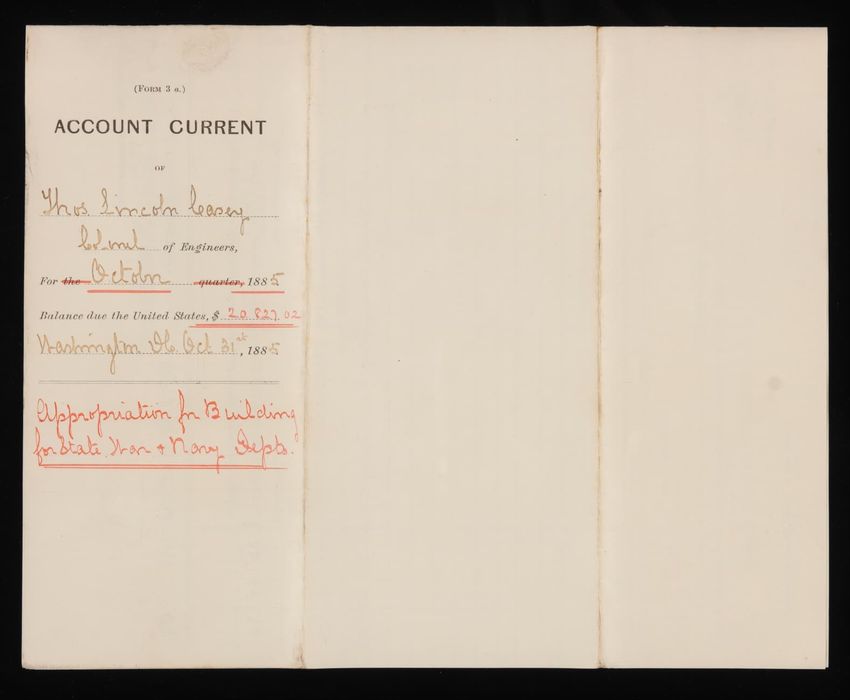 (Form 3 a.)
ACCOUNT CURRENT
OF
Thos. Lincoln Casey
Colonel of Engineers,
For the October quarter, 1885
Balance due the United States, $ 20 827.02
Washington DC Oct 31st, 1885
Appropriation for Building
for State, War & Navy Depts.